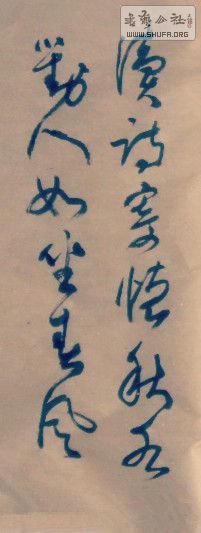 書藝公社
WWW.SHUFA.ORG
讀詩寄懷秋水
對人如坐春風